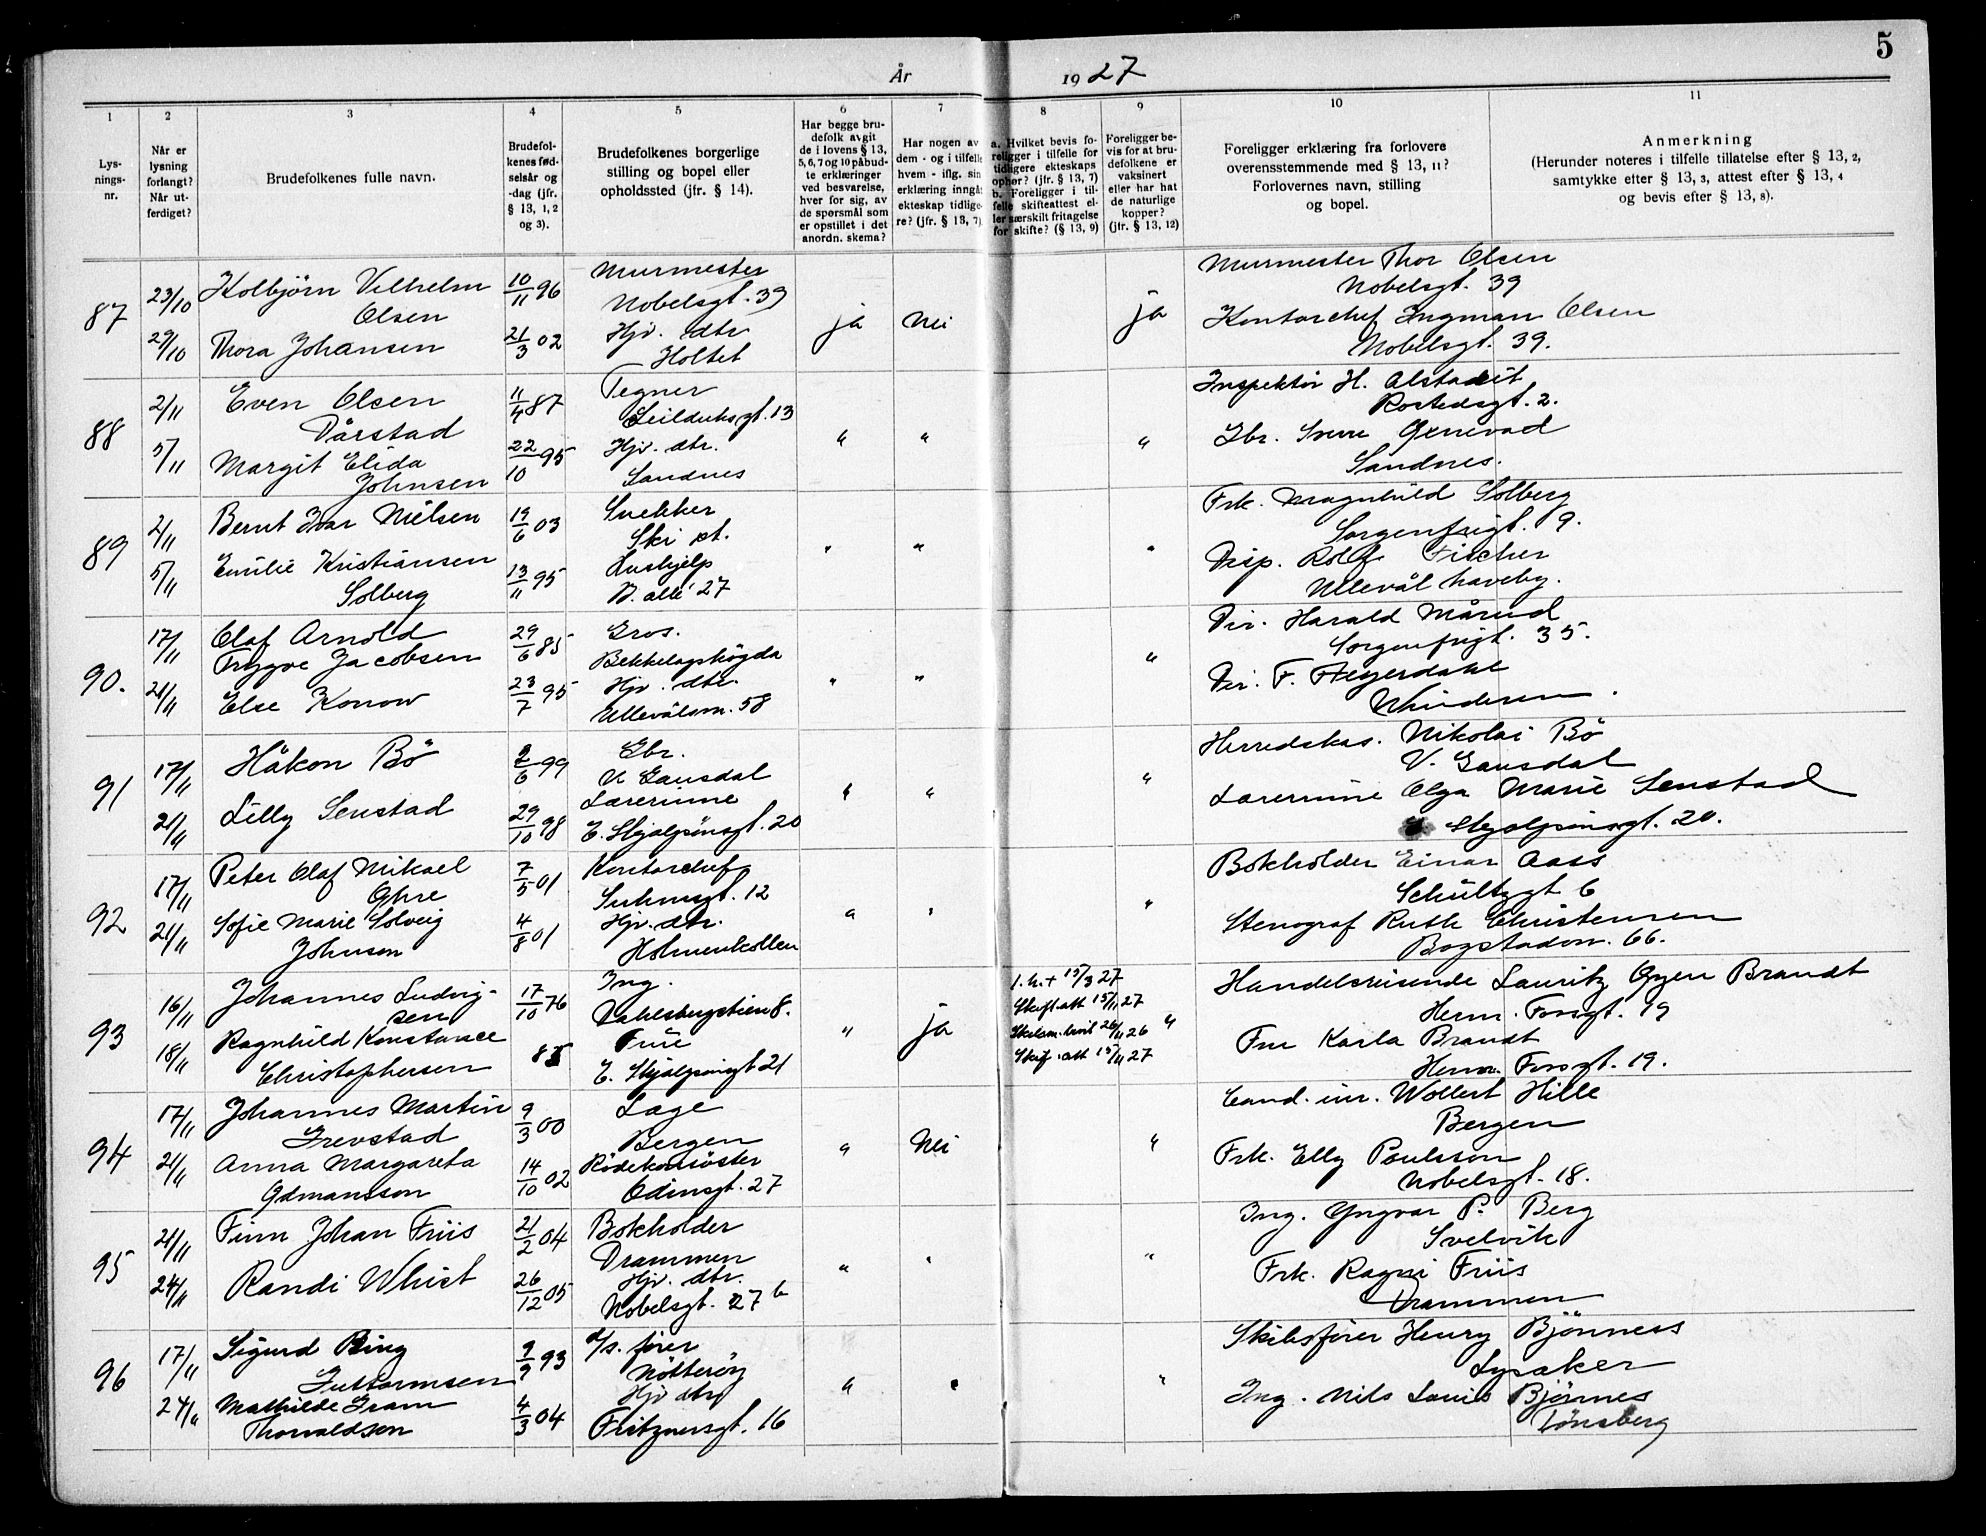 5
År 1927
1 2 3 4 5 6 7 8 9 10 11
Lysningsnr.
Når er lysning forlangt? Når utferdiget?
Brudefolkenes fulle navn.
Brudefolkenes fødselsår og -dag (jfr. § 13, 1, 2 og 3).
Brudefolkenes borgerlige stilling og bopel eller opholdssted (jfr. § 14).
Har begge brudefolk avgit de i lovens § 13, 5, 6, 7 og 10 påbudte erklæringer ved besvarelse, hver for sig, av de spørsmål som er opstillet i det anordn. skema?
Har nogen av dem - og i tilfelle hvem - iflg. sin erklæring inngåt ekteskap tidligere? (jfr. § 13, 7)
a. Hvilket bevis foreligger i tilfelle for tidligere ekteskaps ophør? (jfr. § 13, 7) b. Foreligger i tilfelle skifteattest eller særskilt fritagelse for skifte? (§ 13, 9)
Foreligger bevis for at brudefolkene er vaksinert eller har hat de naturlige kopper? (jfr. § 13, 12)
Foreligger erklæring fra forlovere overensstemmende med § 13, 11? Forlovernes navn, stilling og bopel.
Anmerkning (Herunder noteres i tilfelle tillatelse efter § 13, 2, samtykke efter § 13, 3, attest efter § 13, 4 og bevis efter § 13, 8).
87 23/10 Kolbjörn Vilhelm 10/11 96 Murmester Murmester Thor Olsen
Olsen Nobelsgt. 39 ja Nei ja Nobelsgt. 39
29/10 Thora Johansen 21/3 02 Hjv. dtr Kontorchef Ingman Olsen
Holtet Nobelsgt. 39.
88 2/11 Even Olsen 11/4 87 Tegner Inspektör H.
Dårstad Seilduksgt. 13 " " " Rostedsgt. 2.
5/11 Margit Elida 22/10 95 Hjv. dtr. Gbr.
Johnsen Sandnes Sandnes.
89 2/11 Bernt Ivar Nielsen 19/6 03 Snekker Frk. Magnhild Solberg
Ski st. " " " Sorgenfrigt. 9.
5/11 Emilie Kristiansen 13/11 95 Hushjelp Disp. Rolf Fischer
Solberg B. allé 27 Ullevål haveby.
90. 17/11 Olaf Arnold 29/6 85 Gros. Dir. Harald Mårud
Trygve Jacobsen Bekkelagshögda " " " Sorgenfrigt. 35.
21/11 Else Konow 23/7 95 Hjv. dtr. Dir. F. Heyerdahl
Ullevålsvn. 58 Vinderen.
91 17/11 Håkon Bö 2/6 99 Gbr. Herredskas. Nikolai Bö
V. Gausdal " " " V. Gausdal
21/11 Lilly Senstad 29/10 98 Lærerinne Lærerinne Olga Marie Senstad
E. Skjalgsönsgt. 20 Skjalgsönsgt. 20.
92 17/11 Peter Olaf Mikael 7/5 01 Kontorchef Bokholder Einar Aass
Suhmsgt. 12 " " " Schultzgt 6
21/11 Sofie Marie Solveig 4/8 01 Hjv. dtr. Stenograf Ruth Christensen
Johnson Holmenkollen Bogstadvn. 66.
93 16/11 Johannes Ludvig- 17/10 76 Ing. 1. h. + 15/3 27 Handelsreisende Lauritz Gyen Brandt
sen Dahlsbergstien 8. " ja Skift. att 15/11 27 Herm. Fossgt. 19
18/11 Ragnhild Konstance 85 Frue 26/11 26 " Fru Karla Brandt
Christophersen E. Skjalgsönsgt 21 Skif. att 15/11 27 Herm. Fossgt. 19.
94 17/11 Johannes Martin 9/3 00 Læge Cand. jur. Wollert Hille
Grevstad Bergen " Nei " Bergen
21/11 Anna Margareta 14/10 02 Rödekorssöster Frk. Elly Poulsson
Odinsgt. 27 Nobelsgt. 18.
95 21/11 Finn Johan Friis 21/2 04 Bokholder Ing. Yngvar P. Berg
Drammen " " " Svelvik
24/11 Randi Whist 26/12 05 Hjv. dtr. Frk. Ragni Friis
Nobelsgt. 27 b Drammen
96 17/11 Sigurd Ring 9/9 93 s/s. förer Skibsförer Henry Bjönness
Guttormsen Nötteröy " " " Lysaker
24/11 Mathilde Fram 4/3 04 Hjv dtr Ing. Nils Louis Bjönnes
Thorvaldsen Fritznersgt. 16 Tönsberg